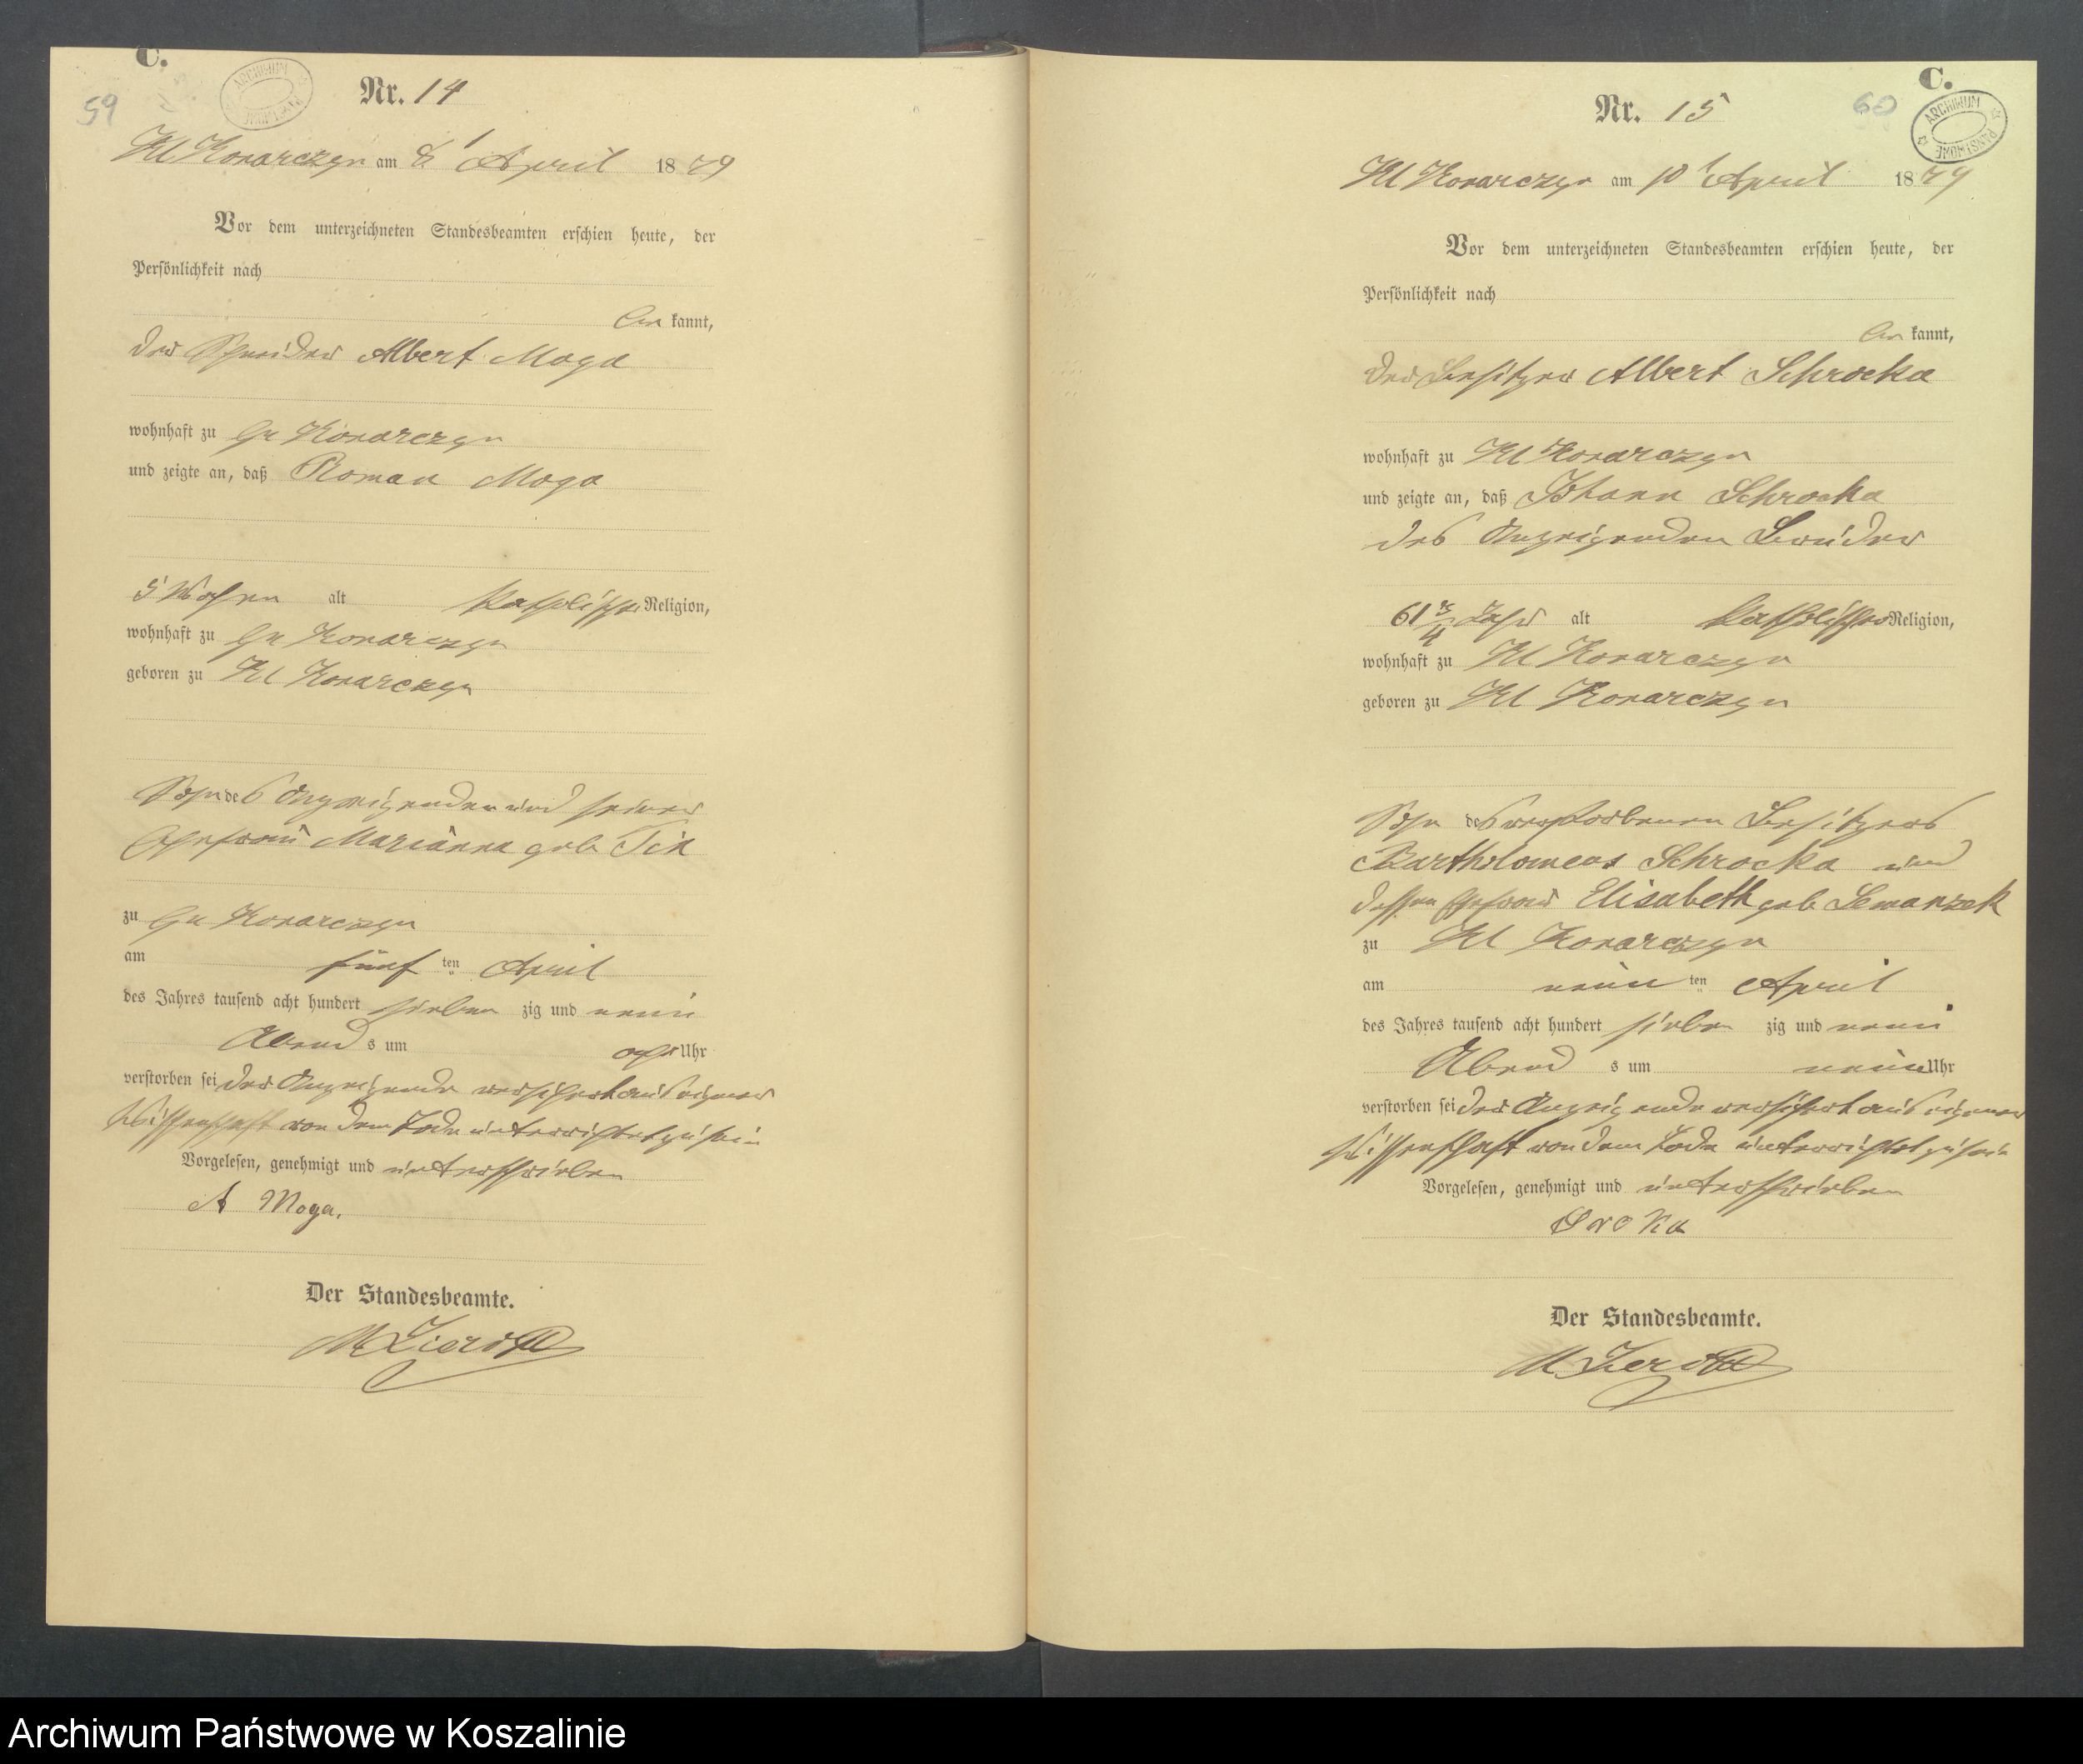 C.
59
ARCHIWUM PAŃSTWOWE
Nr. 14
Kl Konarczyn am 8 April 1879
Vor dem unterzeichneten Standesbeamten erschien heute, der
Persönlichkeit nach
be kannt,
der Schneider Albert Moga
wohnhaft zu Gr Konarczyn
und zeigte an, daß Roman Moga
5 Wochen alt katholischer Religion,
wohnhaft zu Gr Konarczyn
geboren zu Kl Konarczyn
Sohn des Anzeigenden und seiner
Ehefrau Marianna geb
zu Gr Konarczyn
am fünf ten April
des Jahres tausend acht hundert sieben zig und neun
Abend s um acht Uhr
verstorben sei der Anzeigende versichert aus eigener
Wissenschaft von dem Tode unterrichtet zu sein
Vorgelesen, genehmigt und unterschrieben
A Moga.
Der Standesbeamte.
C.
60
ARCHIWUM PAŃSTWOWE
Nr. 15
Kl Konarczyn am 10 April 1879
Vor dem unterzeichneten Standesbeamten erschien heute, der
Persönlichkeit nach
be kannt,
der Besitzer Albert Schrocka
wohnhaft zu Kl Konarczyn
und zeigte an, daß Johann Schrocka
des Anzeigenden Bruder
61 3/4 Jahr alt katholischer Religion,
wohnhaft zu Kl Konarczyn
geboren zu Kl Konarczyn
Sohn des verstorbenen Besitzers
Bartholomeus Schrocka und
dessen Ehefrau Elisabeth geb
zu Kl Konarczyn
am neun ten April
des Jahres tausend acht hundert sieben zig und neun
Abend s um neun Uhr
verstorben sei der Anzeigende versichert aus eigener
Wissenschaft von dem Tode unterrichtet zu sein
Vorgelesen, genehmigt und unterschrieben
Sroka
Der Standesbeamte.
Archiwum Państwowe w Koszalinie